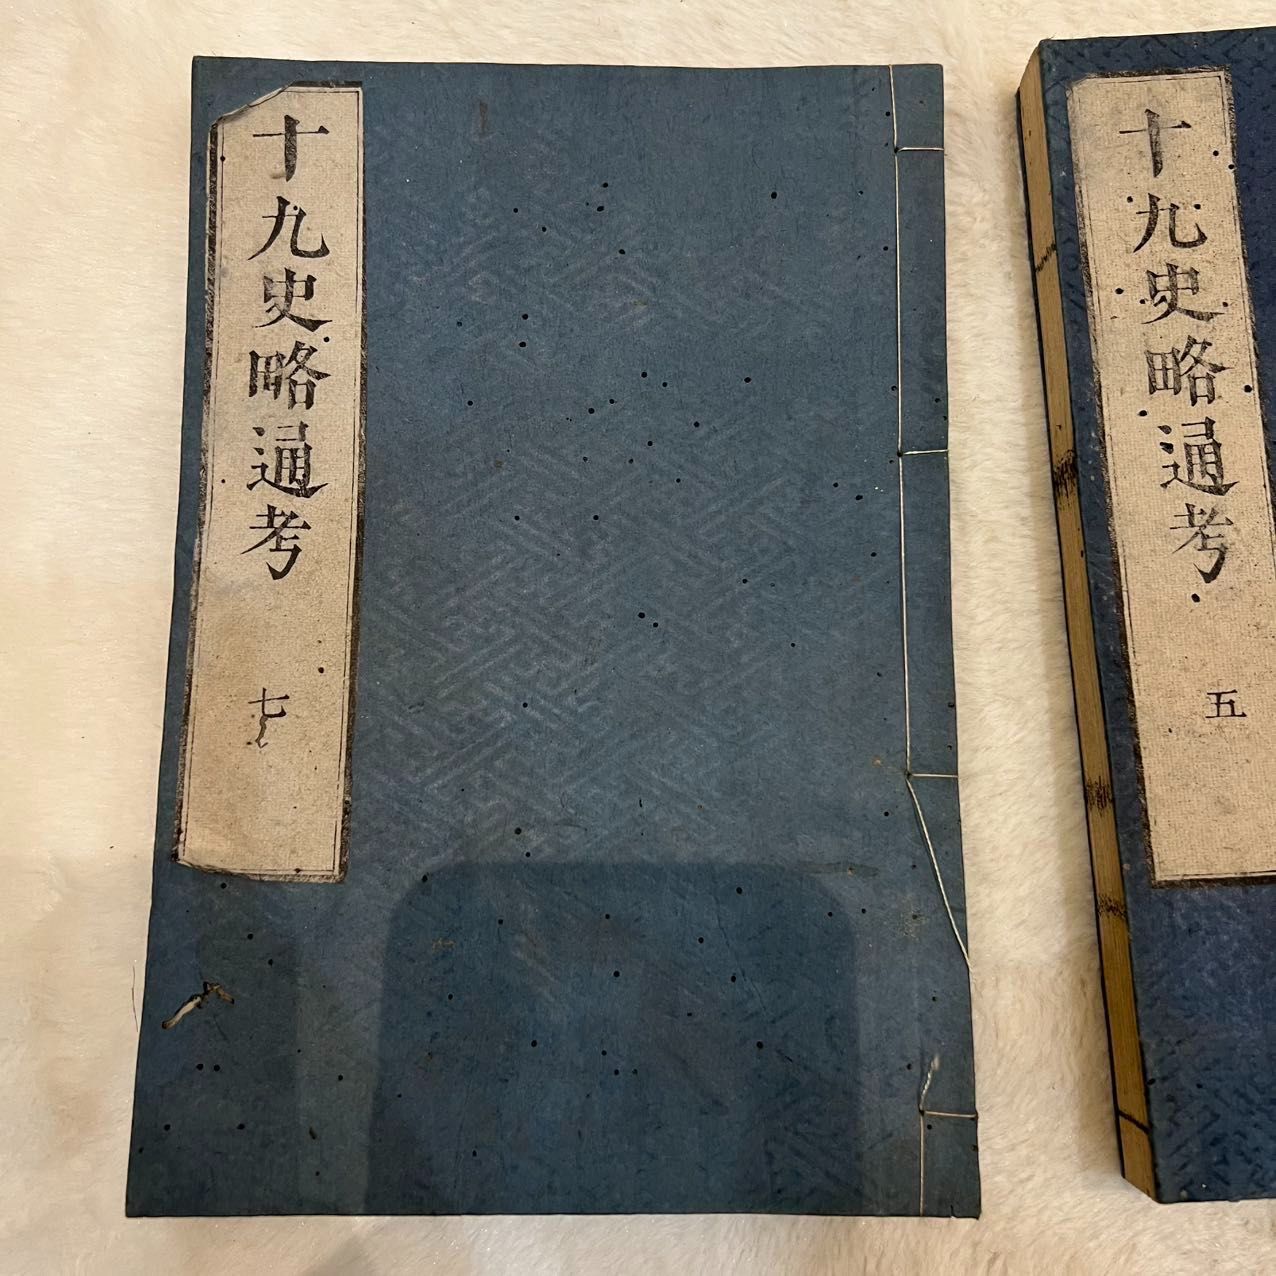 十九史略通考
七
十九史略通考
五